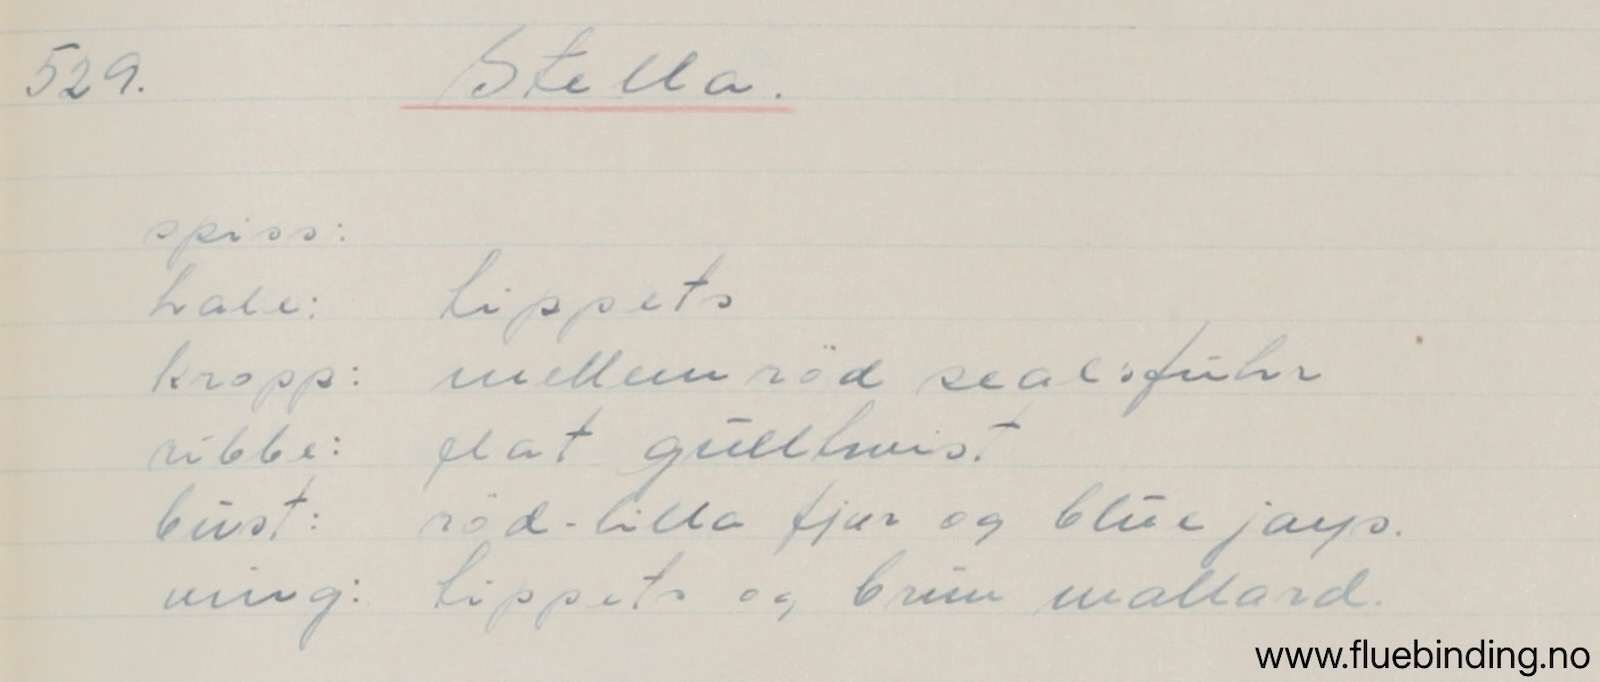 529. Stella.
spiss:
hale: tippets
kropp: mellem röd seal:fuhr
ribbe: flat gulltwist
bust: röd-lilla fjær og blue jays.
ving: tippets og brun mallard.
www.fluebinding.no